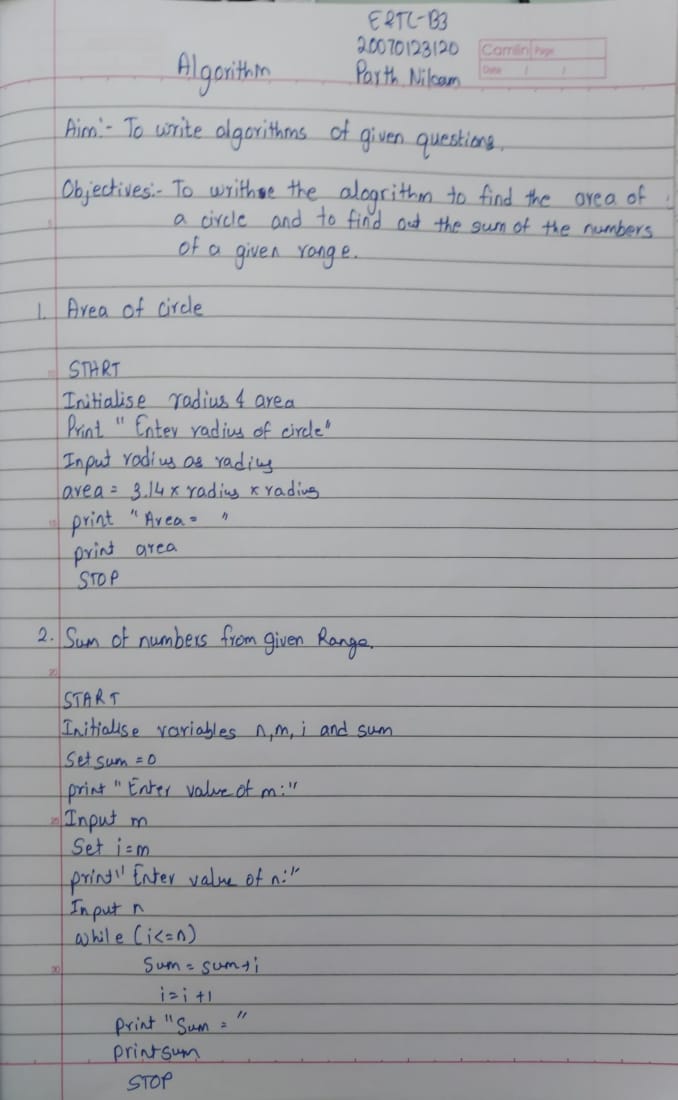 E&TC-B3
20070123120
Parth Nikam
Camlin Page
Date / /
Algorithm
Aim:- To write algorithms of given questions.
Objectives:- To writhe the alogrithm to find the area of
a circle and to find out the sum of the numbers
of a given range.
1. Area of circle
START
Initialise radius & area
Print "Enter radius of circle"
Input radius as radius
area = 3.14 x radius x radius
print "Area = "
print area
STOP
2. Sum of numbers from given Range.
START
Initialise variables n,m, i and sum
Set sum = 0
print "Enter value of m:"
Input m
Set i=m
print "Enter value of n:"
Input n
while (i<=n)
Sum = sum+i
i=i+1
print "Sum = "
print sum
STOP